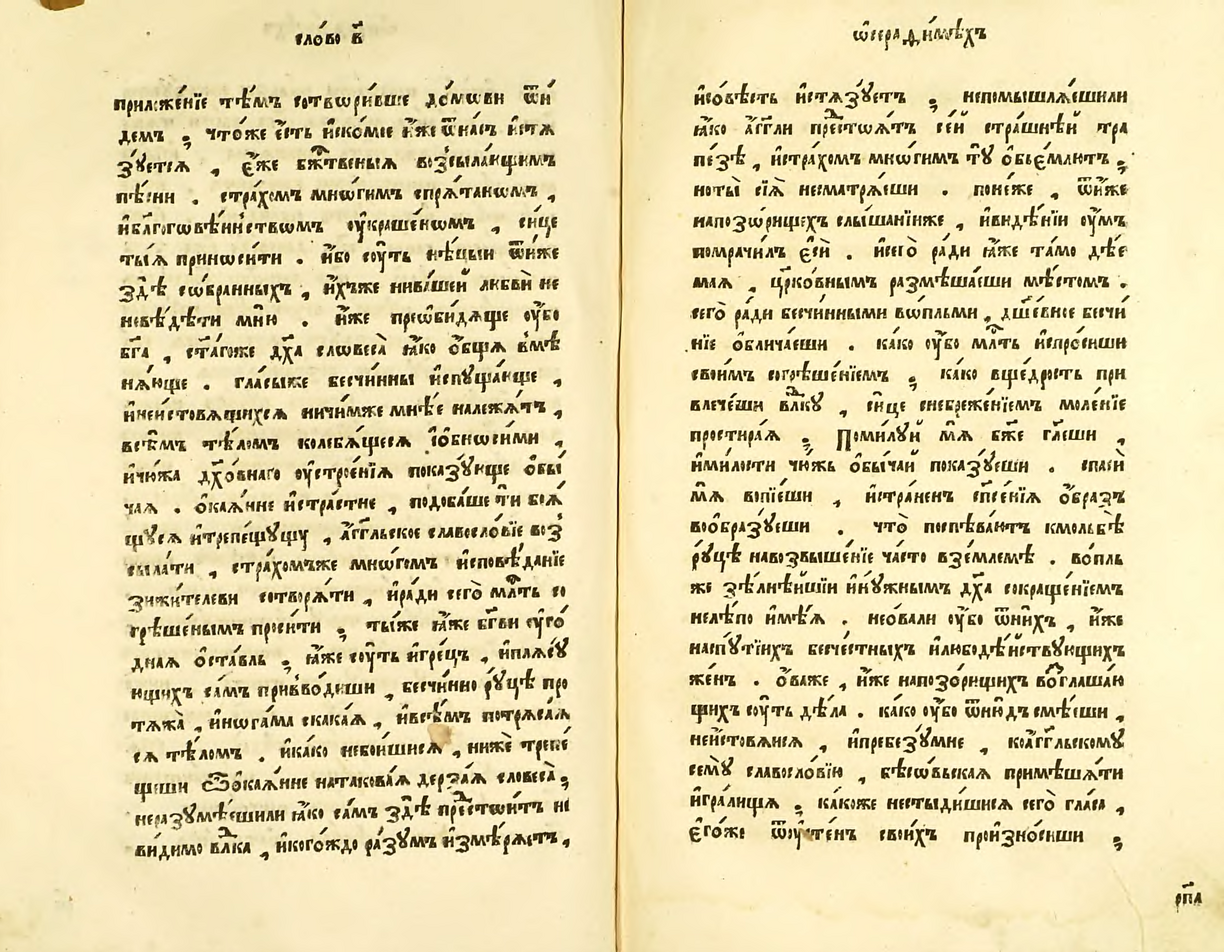 сло́во в҃
приложе́нїе тѣ́мъ сотвори́вше до́мѡви ѿи́
демъ ; что́же є҆́сть и҆ско́мїе и҆́же ѿна́съ и҆стѧ
зꙋ́етсѧ , є҆́же бж҃твеныѧ возсыла́ющимъ
пѣ́сни . стра́хомъ мно́гимъ спрѧ́танѡмъ ,
и҆бл҃гоговѣ́инствомъ оу҆краше́нѡмъ , си́це
ты́ѧ приноси́ти . и҆́бо сꙋ́ть нѣ́цыи ѿи҆́же
здѣ̀ собранныхъ , и҆́хъже нива́шей любвѝ не
невѣ́дѣти мню̀ . и҆́же преѡби́дѧще оу҆́бо
бг҃а , ст҃а́гоже дх҃а словеса̀ ꙗ҆́ко о҆́бщѧ вмѣ
нѧ́юще . гла́сыже бесчи́нны и҆спꙋща́юще ,
и҆неи́стовѧщихсѧ ничи́мже мнѣ́е належа́тъ ,
всѣ́мъ тѣ́ломъ коле́блющесѧ і҆ѡ҆бноси́ми ,
и҆чю́жа дх҃о́внаго оу҆строе́нїѧ показꙋ́юще о҆бы́
чаѧ . о҆каѧ́нне и҆стра́стне , подоба́ше ти боѧ́
щꙋсѧ и҆трепе́щꙋщꙋ , а҆́гг҃льское славосло́вїе воз
сыла́ти , стра́хомъже мно́гомъ и҆сповѣ́данїе
зижи́телеви сотворѧ́ти , и҆ра́ди сегѡ̀ мл҃ть со
грѣше́нымъ проси́ти ; ты́же ꙗ҆́же бг҃ви оу҆го́
днаѧ о҆ста́вль ; ꙗ҆́же сꙋ́ть и҆гре́цъ , и҆плѧ́сꙋ
ющихъ са́мъ приво́диши , бесчи́нно рꙋ́цѣ про
тѧжа̀ , и҆нога́ма скака́ѧ , и҆всѣ́мъ потрѧса́ѧ
сѧ тѣ́ломъ . и҆ка́ко небои́шисѧ , нижѐ трепе́
щеши ѽ҆каѧ́нне натакова́ѧ дерза́ѧ словеса̀ ;
неразꙋмѣ́ешили ꙗ҆́ко са́мъ здѣ̀ престои́тъ не
ви́димо вл҃ка , и҆кого́ждо ра́зꙋмъ и҆змѣрѧ́етъ ,
ѡ҆серафі́мѣхъ
и҆со́вѣсть и҆стѧзꙋ́етъ ; непомышлѧ́ешили
ꙗ҆́ко а҆́гг҃ли престоѧ́тъ се́й стра́шнѣй тра
пе́зѣ , и҆стра́хомъ мно́гимъ тꙋ̀ о҆б̾е́млютъ ;
ноты̀ сїѧ̀ несматрѧ́еши . поне́же , ѿи҆́же
напозо́рищехъ слы́шанїиже , и҆ви́дѣнїи оу҆́мъ
помрачи́лъ є҆сѝ . и҆сегѡ̀ ра́ди ꙗ҆́же та́мо дѣе
маѧ , цр҃ко́внымъ размѣша́еши мѣ́стомъ .
сегѡ̀ ра́ди бесчи́нными во́пльми , дш҃е́вное бесчи́
нїе о҆блича́еши . ка́ко оу҆́бо мл҃ть и҆спро́сиши
свои́мъ согрѣше́нїемъ ; ка́ко вще́дрость при
влече́ши вл҃кꙋ , си́це снебреже́нїемъ моле́нїе
простира́ѧ ; Поми́лꙋй мѧ̀ бж҃е гл҃еши ,
и҆ми́лости чю́жь о҆бы́чай показꙋ́еши . спасѝ
мѧ̀ вопїе́ши , и҆стра́ненъ спс҃е́нїѧ о҆́бразъ
вообразꙋ́еши . что̀ поспѣва́ютъ кмольбѣ̀
рꙋ́цѣ навозвыше́нїе ча́сто взе́млемѣ . во́пль
же зѣ́лнѣйшїи и҆нꙋ́жнымъ дх҃а сокраще́нїемъ
нелѣ́по и҆мѣ́ѧ . нео҆ва́ли оу҆́бо ѿни́хъ , и҆́же
наспꙋтїихъ бесче́стныхъ и҆любодѣ́иствꙋющихъ
же́нъ . о҆ва́же , и҆́же напозо́рищихъ вогⷧаша́ю
щихъ сꙋ́ть дѣ́ла . ка́ко оу҆́бо ѿню́дъ смѣ́еши ,
неи́стовѧисѧ , и҆пребезꙋ́мне , коа҆гг҃льскомꙋ
семꙋ̀ славосло́вїю , бѣсо́вьскаѧ примѣша́ти
и҆гра́лищѧ ; ка́коже нестыди́шисѧ сегѡ̀ гла́са ,
є҆го́же свои́хъ произно́сиши ;
рп҃а